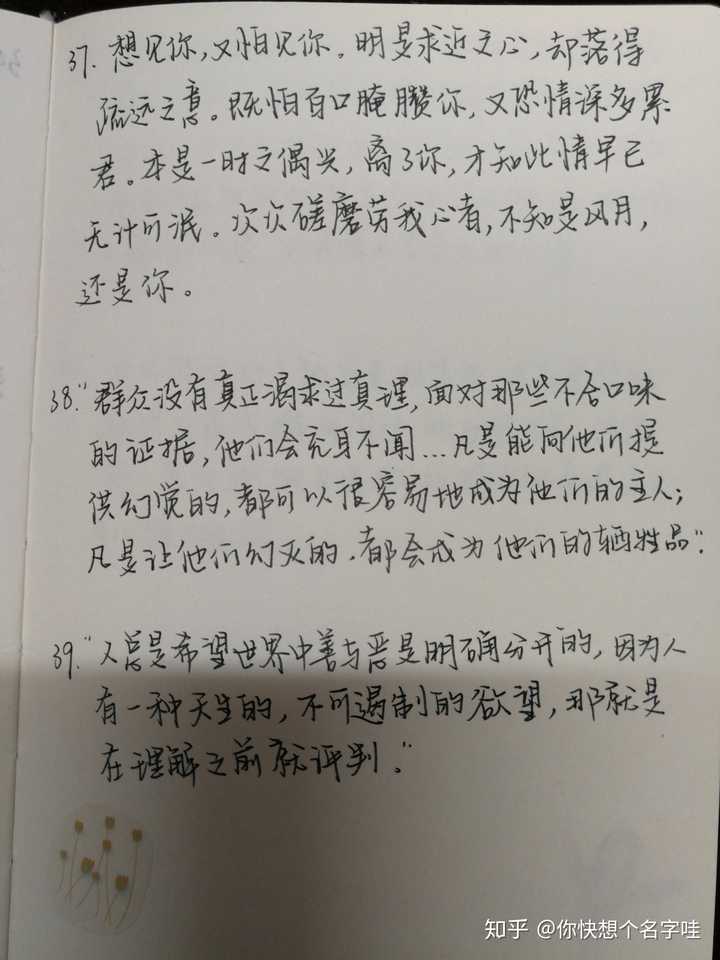 37. 想见你，又怕见你。明是求近之心，却落得
疏远之意。既怕百口腌臜你，又恐情深多累
君。本是一时之偶兴，离了你，才知此情早已
无计可泯。次次磋磨劳我心者，不知是风月，
还是你。
38."群众没有真正渴求过真理，面对那些不合口味
的证据，他们会充耳不闻...凡是能向他们提
供幻觉的，都可以很容易地成为他们的主人；
凡是让他们幻灭的，都会成为他们的牺牲品".
39."人总是希望世界中善与恶是明确分开的，因为人
有一种天生的，不可遏制的欲望，那就是
在理解之前就评判。"
知乎 @你快想个名字哇